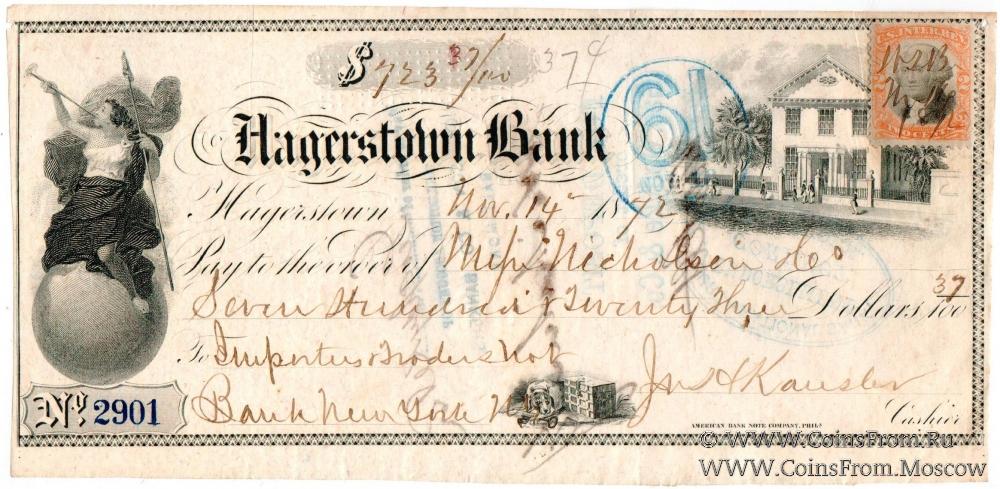 $ 723 37/100 374
U.S. INTER. REV.
Hagerstown Bank
61
Hagerstown Nov. 14 1872
Pay to the order of Mess Nicholson & Co
Seven Hundred & Twenty Three Dollars, 37/100
To Importers & Traders Nat
Bank New York
Cashier
No 2901
AMERICAN BANK NOTE COMPANY, PHILA
© WWW.CoinsFrom.Ru
WWW.CoinsFrom.Moscow